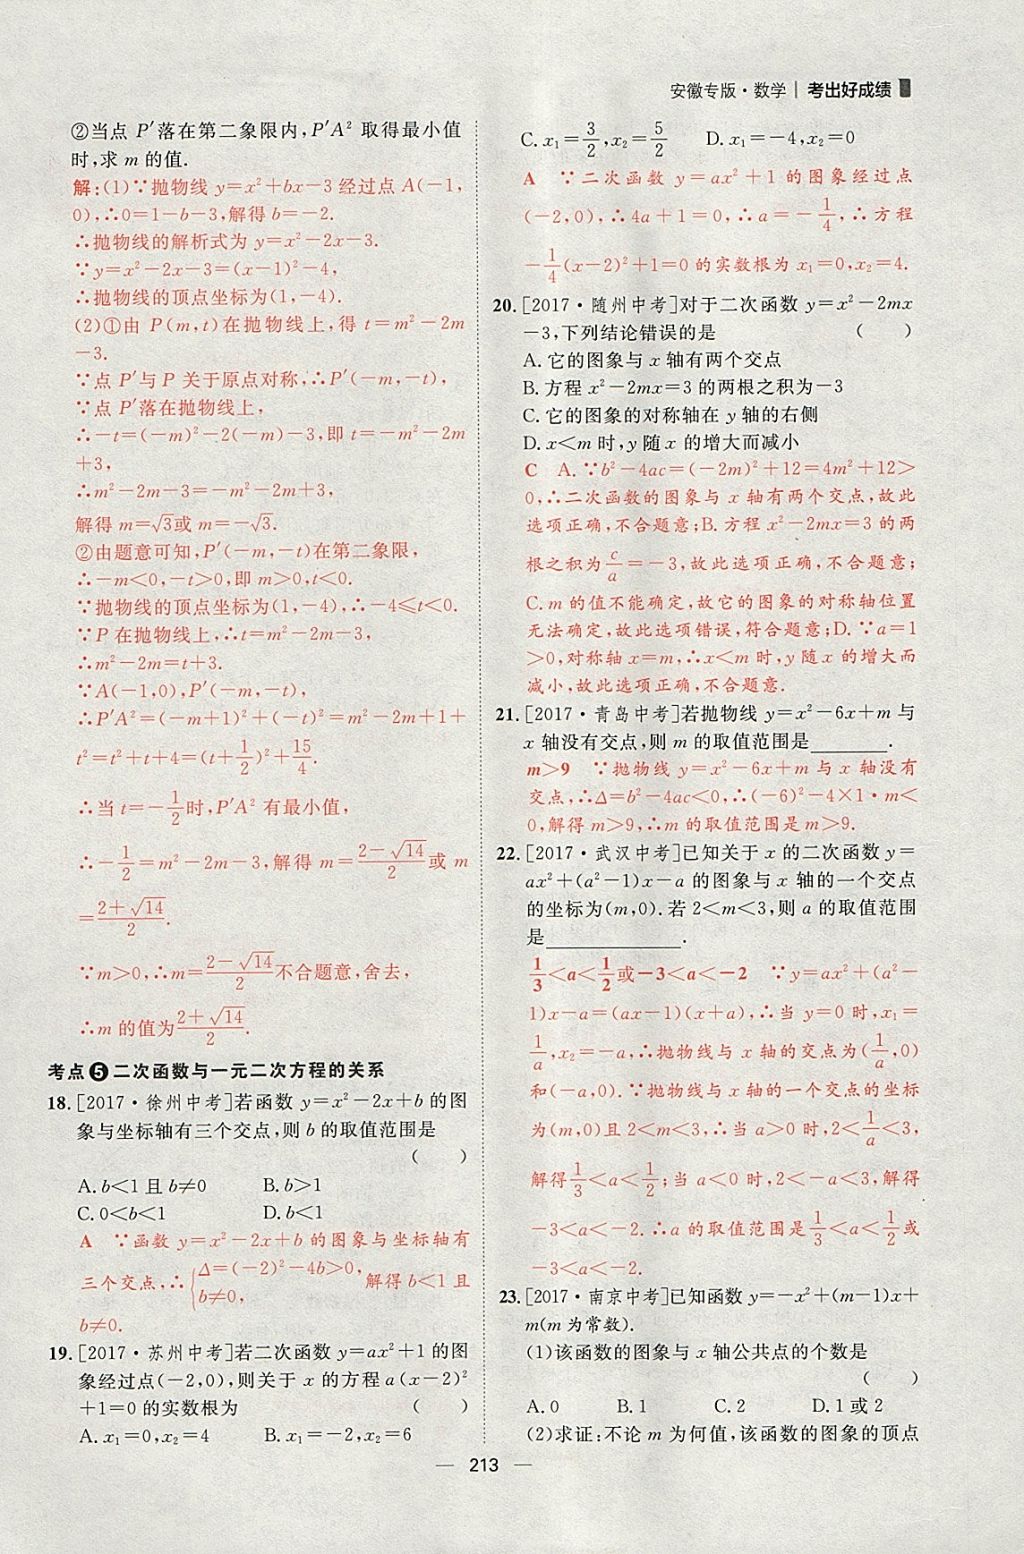 安徽专版·数学 | 考出好成绩
②当点 P′落在第二象限内,P′A² 取得最小值
时,求 m 的值.
解:(1)∵抛物线 y=x²+bx-3 经过点 A(-1,
0),∴0=1-b-3,解得 b=-2.
∴抛物线的解析式为 y=x²-2x-3.
∵y=x²-2x-3=(x-1)²-4,
∴抛物线的顶点坐标为(1,-4).
(2)①由 P(m,t)在抛物线上,得 t=m²-2m
-3.
∵点 P′与 P 关于原点对称,∴P′(-m,-t),
∵点 P′落在抛物线上,
∴-t=(-m)²-2(-m)-3,即 t=-m²-2m
+3,
∴m²-2m-3=-m²-2m+3,
解得 m=√3或 m=-√3.
②由题意可知,P′(-m,-t)在第二象限,
∴-m<0,-t>0,即 m>0,t<0.
∵抛物线的顶点坐标为(1,-4),∴-4≤t<0.
∵P 在抛物线上,∴t=m²-2m-3,
∴m²-2m=t+3.
∵A(-1,0),P′(-m,-t),
∴P′A²=(-m+1)²+(-t)²=m²-2m+1+
t²=t²+t+4=(t+1/2)²+15/4.
∴当 t=-1/2时,P′A² 有最小值,
∴-1/2=m²-2m-3,解得 m=(2-√14)/2或 m
=(2+√14)/2.
∵m>0,∴m=(2-√14)/2不合题意,舍去,
∴m 的值为(2+√14)/2.
考点❺二次函数与一元二次方程的关系
18.[2017·徐州中考]若函数 y=x²-2x+b 的图
象与坐标轴有三个交点,则 b 的取值范围是
(　　)
A.b<1 且 b≠0　　B.b>1
C.0<b<1　　D.b<1
A　∵函数 y=x²-2x+b 的图象与坐标轴有
三个交点,∴{Δ=(-2)²-4b>0, b≠0, 解得 b<1 且
b≠0.
19.[2017·苏州中考]若二次函数 y=ax²+1 的图
象经过点(-2,0),则关于 x 的方程 a(x-2)²
+1=0 的实数根为　　(　　)
A.x₁=0,x₂=4　　B.x₁=-2,x₂=6
C.x₁=3/2,x₂=5/2　　D.x₁=-4,x₂=0
A　∵二次函数 y=ax²+1 的图象经过点
(-2,0),∴4a+1=0,∴a=-1/4,∴方程
-1/4(x-2)²+1=0 的实数根为 x₁=0,x₂=4.
20.[2017·随州中考]对于二次函数 y=x²-2mx
-3,下列结论错误的是　　(　　)
A.它的图象与 x 轴有两个交点
B.方程 x²-2mx=3 的两根之积为-3
C.它的图象的对称轴在 y 轴的右侧
D.x<m 时,y 随 x 的增大而减小
C　A.∵b²-4ac=(-2m)²+12=4m²+12>
0,∴二次函数的图象与 x 轴有两个交点,故此
选项正确,不合题意;B.方程 x²-2mx=3 的两
根之积为c/a=-3,故此选项正确,不合题意;
C.m 的值不能确定,故它的图象的对称轴位置
无法确定,故此选项错误,符合题意;D.∵a=1
>0,对称轴 x=m,∴x<m 时,y 随 x 的增大而
减小,故此选项正确,不合题意.
21.[2017·青岛中考]若抛物线 y=x²-6x+m 与
x 轴没有交点,则 m 的取值范围是________.
m>9　∵抛物线 y=x²-6x+m 与 x 轴没有
交点,∴Δ=b²-4ac<0,∴(-6)²-4×1·m<
0,解得 m>9,∴m 的取值范围是 m>9.
22.[2017·武汉中考]已知关于 x 的二次函数 y=
ax²+(a²-1)x-a 的图象与 x 轴的一个交点
的坐标为(m,0).若 2<m<3,则 a 的取值范围
是______________.
1/3<a<1/2或-3<a<-2　∵y=ax²+(a²-
1)x-a=(ax-1)(x+a),∴当 y=0 时,x₁=
1/a,x₂=-a,∴抛物线与 x 轴的交点为(1/a,0)
和(-a,0).∵抛物线与 x 轴的一个交点的坐标
为(m,0)且 2<m<3,∴当 a>0 时,2<1/a<3,
解得1/3<a<1/2;当 a<0 时,2<-a<3,解得
-3<a<-2.∴a 的取值范围是1/3<a<1/2或
-3<a<-2.
23.[2017·南京中考]已知函数 y=-x²+(m-1)x+
m(m 为常数).
(1)该函数的图象与 x 轴公共点的个数是
(　　)
A.0　　B.1　　C.2　　D.1 或 2
(2)求证:不论 m 为何值,该函数的图象的顶点
— 213 —